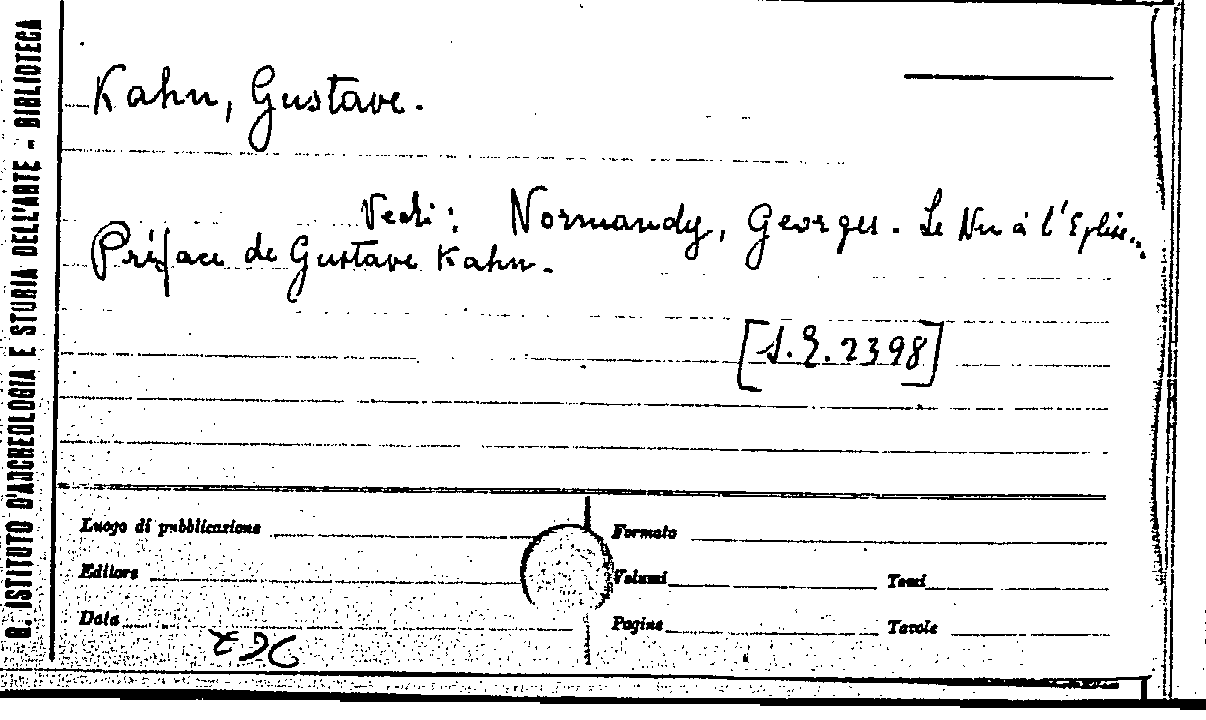 R. ISTITUTO D'ARCHEOLOGIA E STORIA DELL'ARTE - BIBLIOTECA
Kahn, Gustave.
Vedi: Normandy, Georges. Le Nu à l'Eglise..
Préface de Gustave Kahn.
2398]
Luogo di pubblicazione
Formato
Editore
Volumi
Tomi
Data
Pagine
Tavole